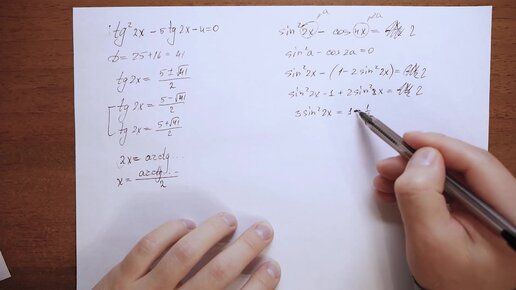 tg² 2x - 5 tg 2x - 4 = 0
D = 25 + 16 = 41
tg 2x = (5 ± √41)/2
tg 2x = (5 - √41)/2
tg 2x = (5 + √41)/2
2x = arctg ...
x = arctg .../2
2a
sin² 2x - cos 4x = 2
sin² a - cos 2a = 0
sin² 2x - (1 - 2 sin² 2x) = 2
sin² 2x - 1 + 2 sin² 2x = 2
3 sin² 2x = 1